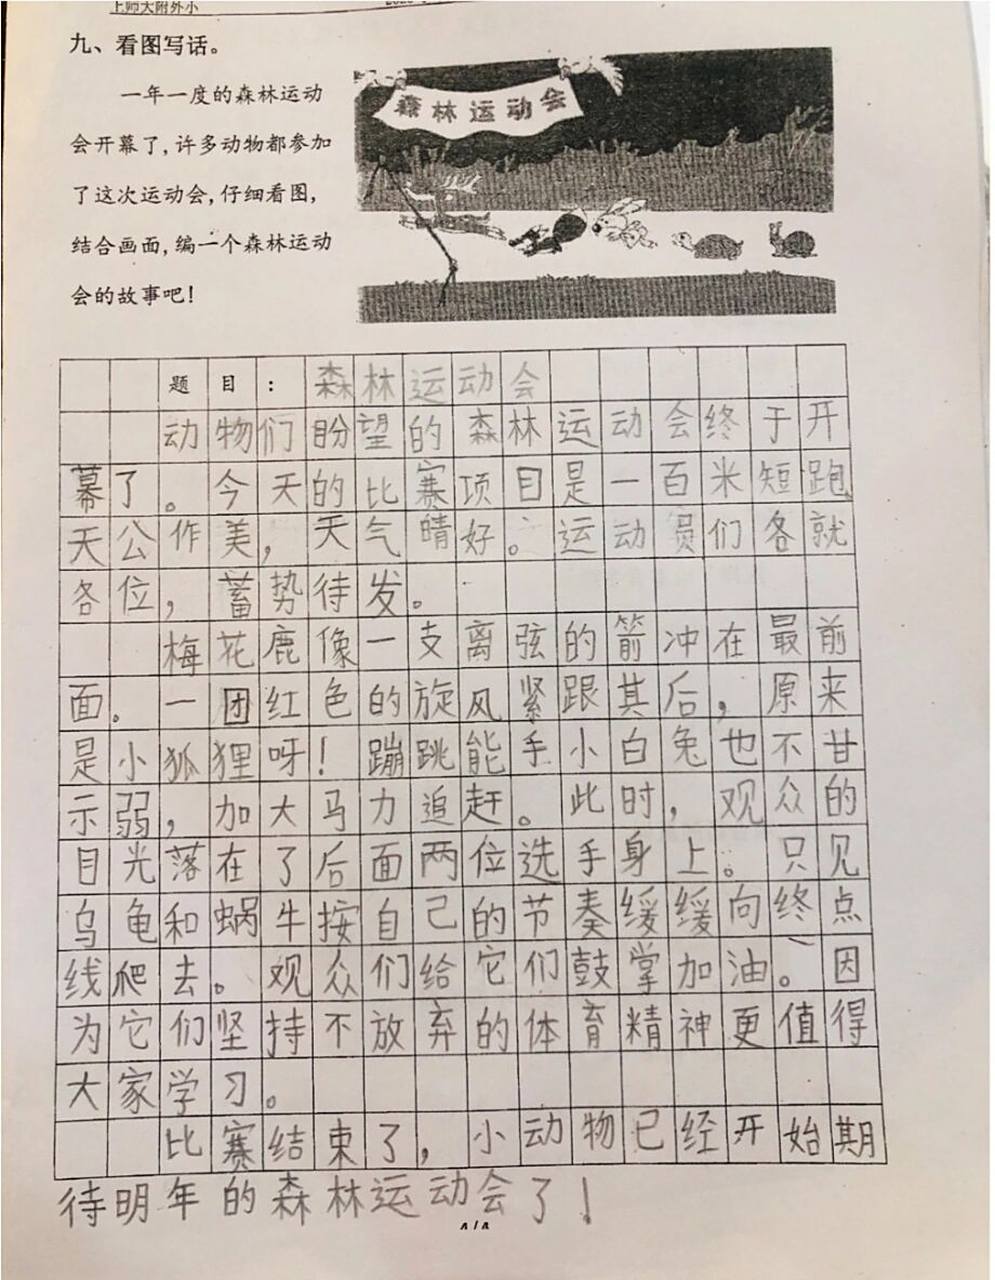 上师大附外小
九、看图写话。
一年一度的森林运动
会开幕了,许多动物都参加
了这次运动会,仔细看图,
结合画面,编一个森林运动
会的故事吧!
森林运动会
题目:森林运动会
动物们盼望的森林运动会终于开
幕了。今天的比赛项目是一百米短跑。
天公作美,天气晴好。运动员们各就
各位,蓄势待发。
梅花鹿像一支离弦的箭冲在最前
面。一团红色的旋风紧跟其后,原来
是小狐狸呀!蹦跳能手小白兔也不甘
示弱,加大马力追赶。此时,观众的
目光落在了后面两位选手身上。只见
乌龟和蜗牛按自己的节奏缓缓向终点
线爬去。观众们给它们鼓掌加油。因
为它们坚持不放弃的体育精神更值得
大家学习。
比赛结束了,小动物已经开始期
待明年的森林运动会了!
4/4